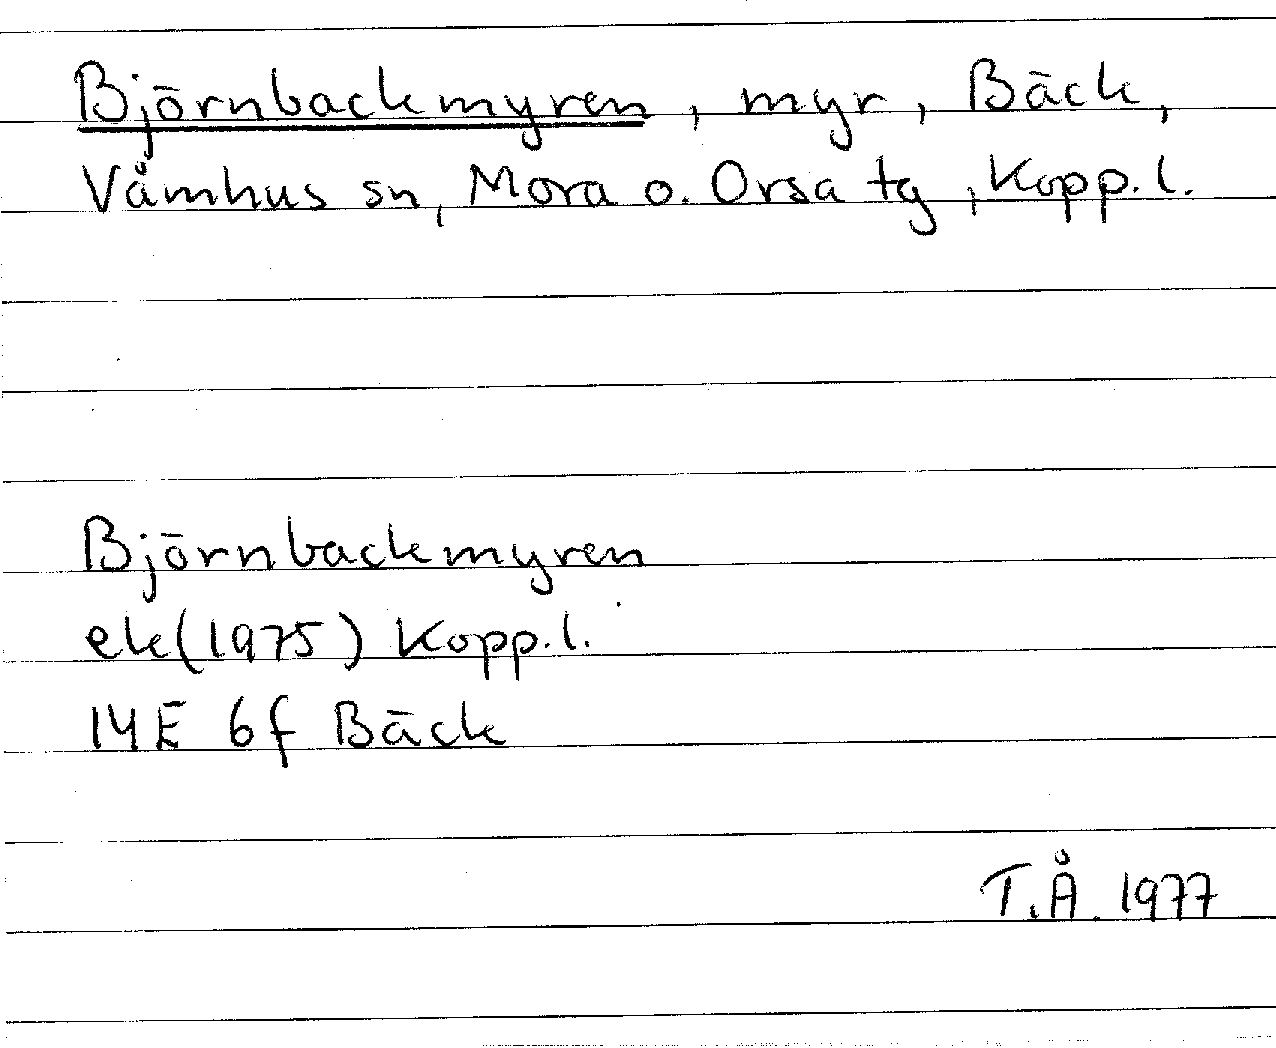 Björnbackmyren, myr, Bäck,
Våmhus sn, Mora o. Orsa tg, Kopp.l.
Björnbackmyren
ek(1975) Kopp.l.
14E 6f Bäck
T.Å. 1977